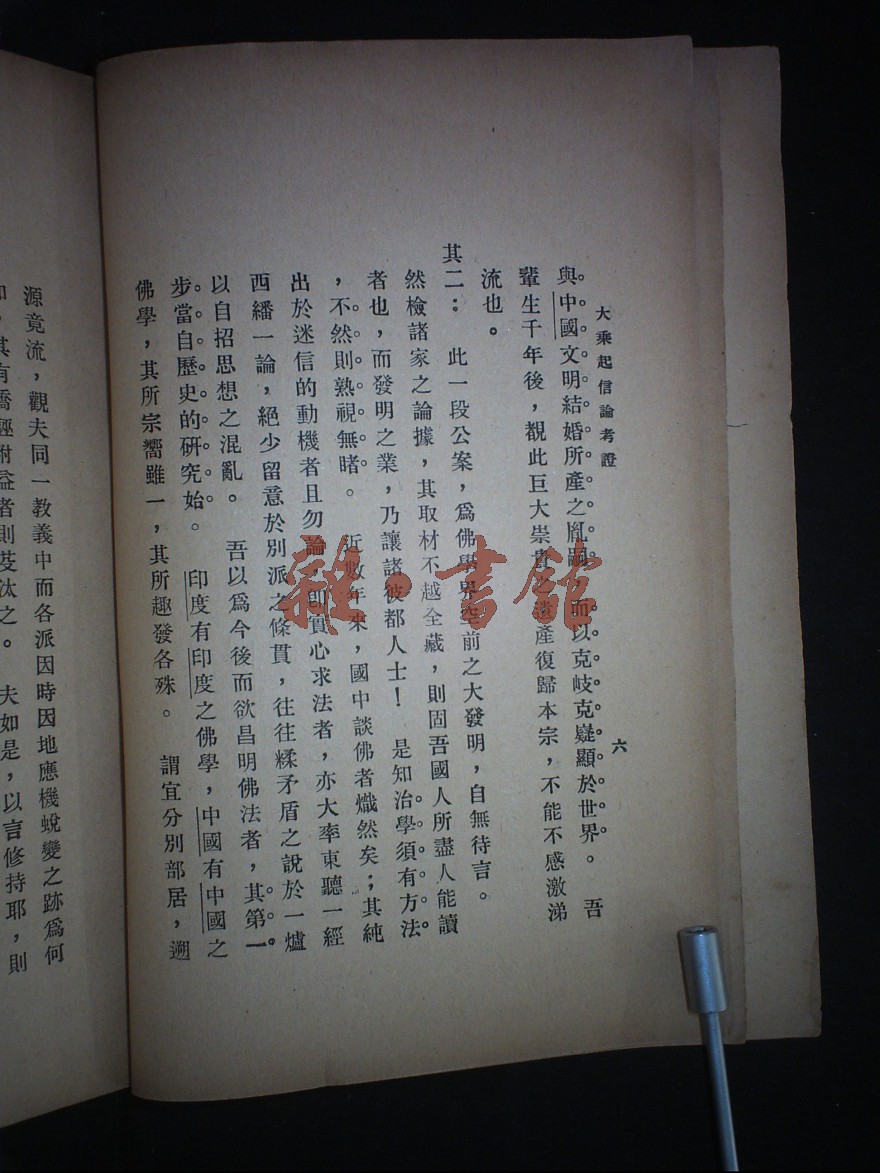 大乘起信論考證
六
與中國文明結婚所產之胤嗣,而以克岐克嶷顯於世界。 吾
輩生千年後,覩此巨大崇貴之遺產復歸本宗,不能不感激涕
流也。
其二: 此一段公案,爲佛學界空前之大發明,自無待言。
然檢諸家之論據,其取材不越全藏,則固吾國人所盡人能讀
者也,而發明之業,乃讓諸彼都人士! 是知治學須有方法
,不然則熟視無睹。 近數年來,國中談佛者熾然矣;其純
出於迷信的動機者且勿論,即實心求法者,亦大率東聽一經
西繙一論,絕少留意於別派之條貫,往往糅矛盾之說於一爐
以自招思想之混亂。 吾以爲今後而欲昌明佛法者,其第一
步當自歷史的研究始。 印度有印度之佛學,中國有中國之
佛學,其所宗嚮雖一,其所趣發各殊。 謂宜分別部居,遡
源竟流,觀夫同一教義中而各派因時因地應機蛻變之跡爲何
其有矯誣附益者則芟汰之。 夫如是,以言修持耶,則
雜·書館